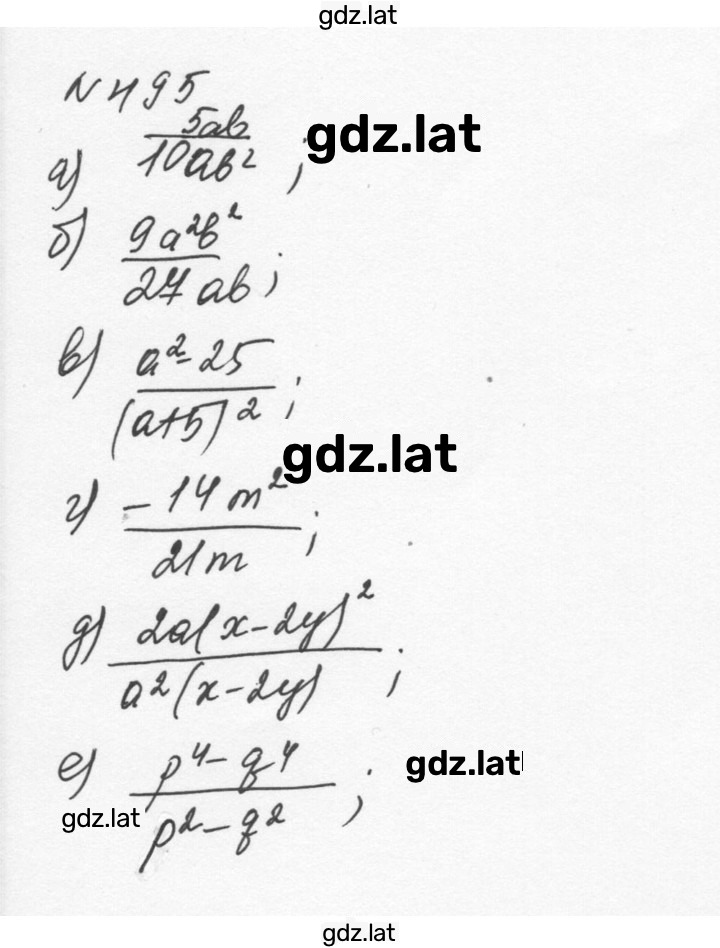 gdz.lat
N 495
а) 5ab/10ab² ; gdz.lat
б) 9a²b²/27ab ;
в) a²-25/(a+5)² ;
gdz.lat
г) -14m²/21m ;
д) 2a(x-2y)²/a²(x-2y) ;
е) p⁴-q⁴/p²-q² ; gdz.lat
gdz.lat
gdz.lat